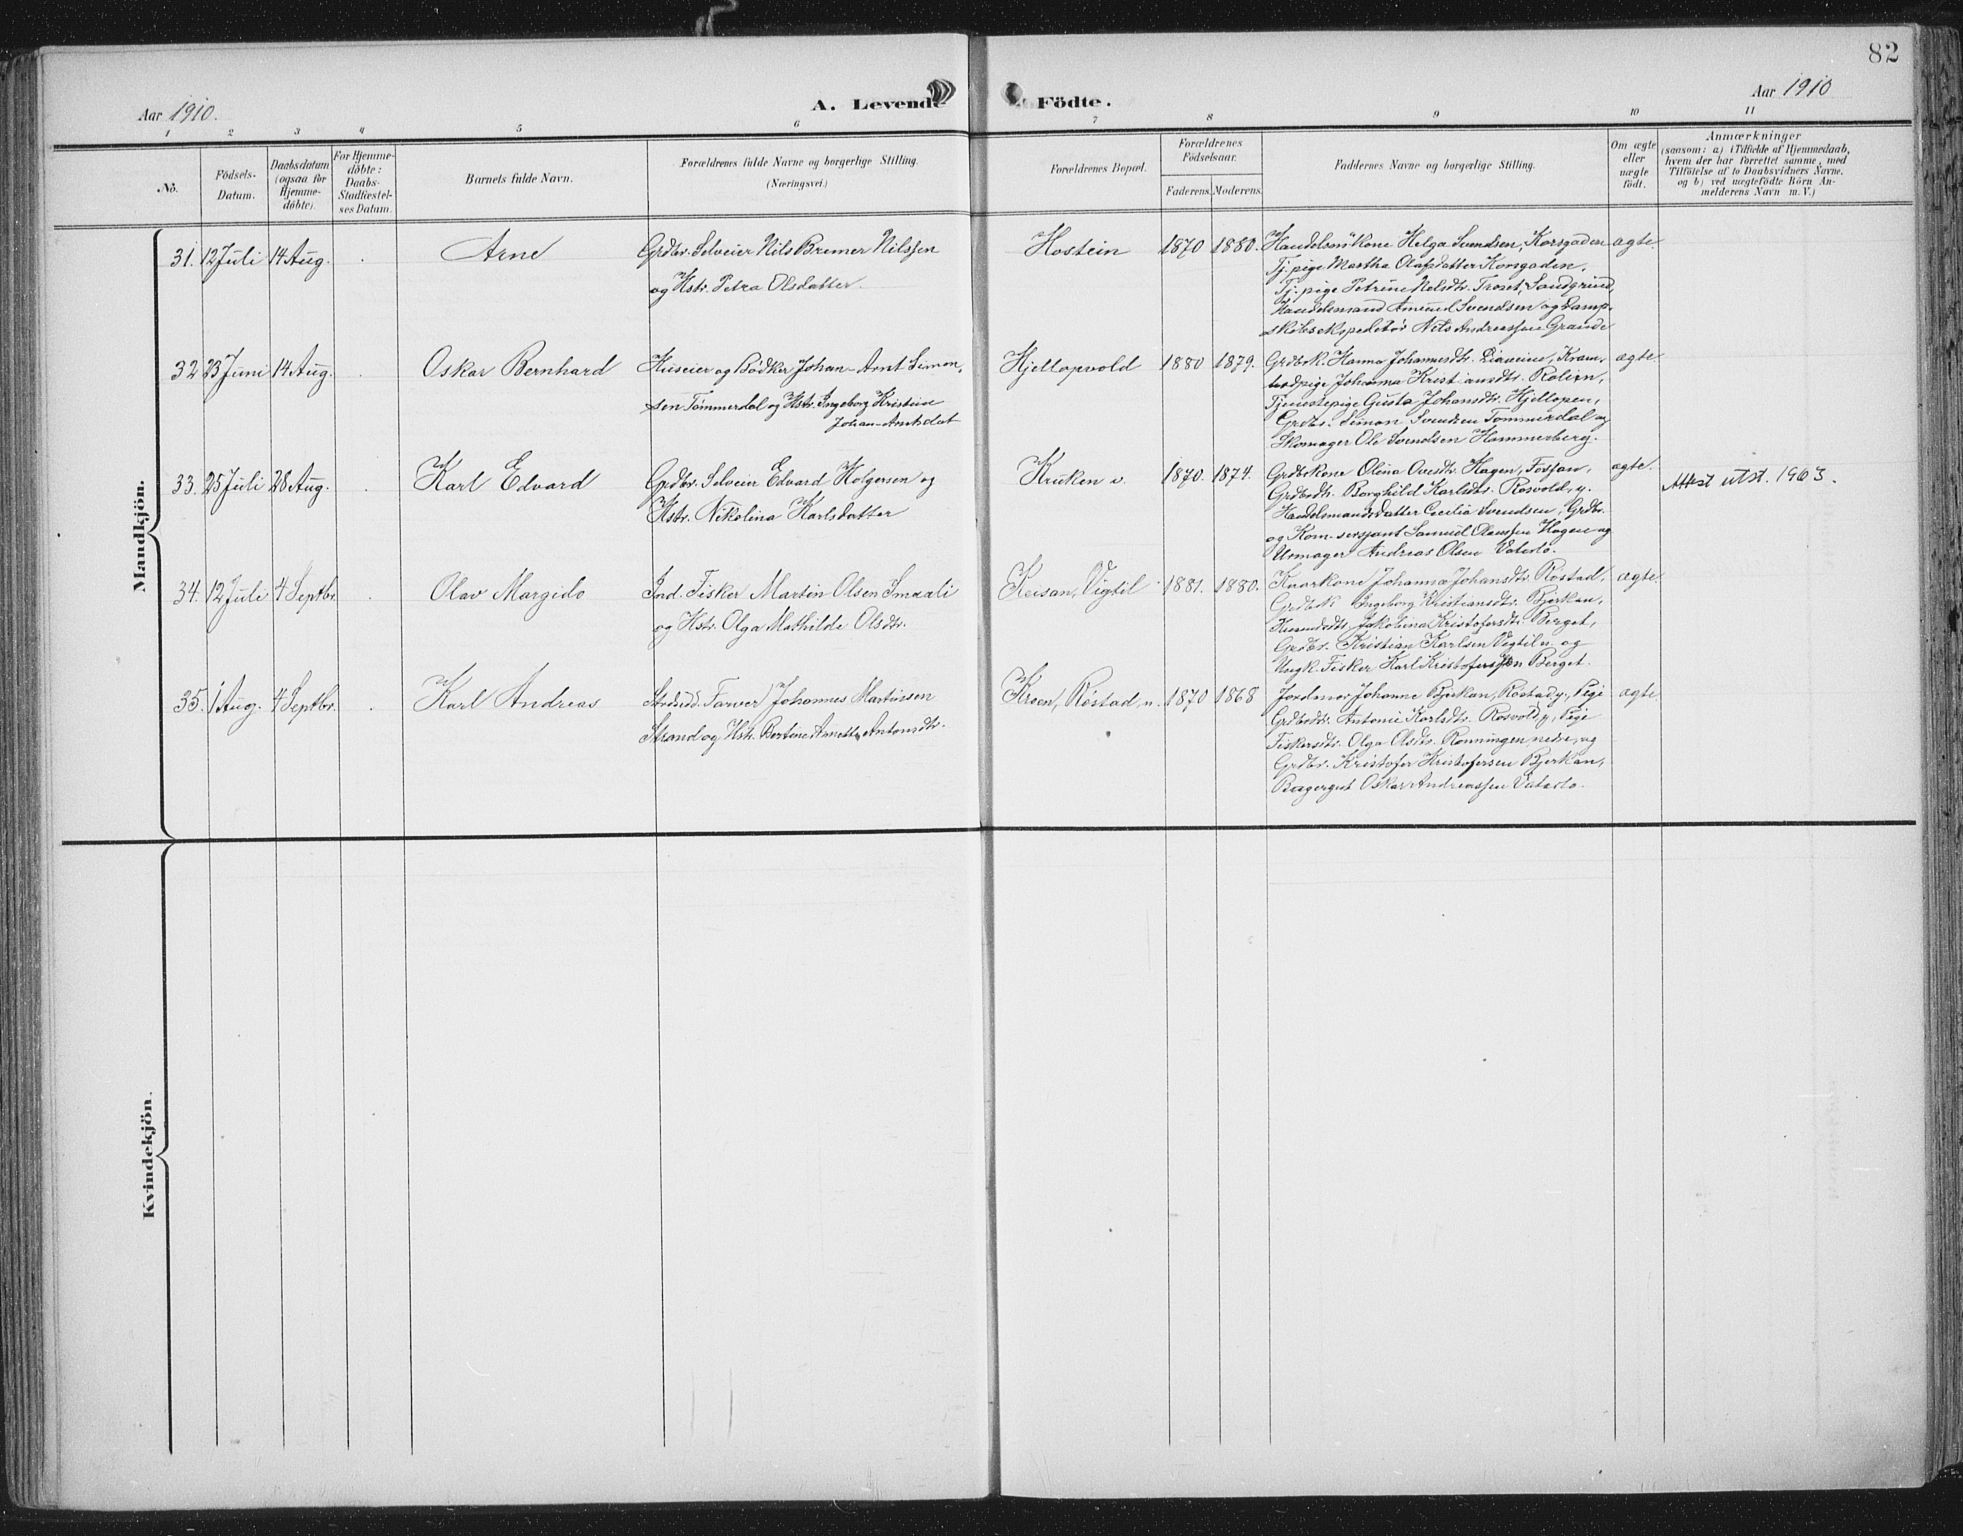 82
Aar 1910.
A. Levende
Födte.
Aar 1910
1 2 3 4 5 6 7 8 9 10 11
No.
Födsels-Datum.
Daabsdatum (ogsaa for Hjemmedöbte).
For Hjemmedöbte: Daabs-Stadfæstelses Datum.
Barnets fulde Navn.
Forældrenes fulde Navne og borgerlige Stilling.
(Næringsvei.)
Forældrenes Bopæl.
Forældrenes Födselsaar.
Faderens. Moderens.
Faddernes Navne og borgerlige Stilling.
Om ægte eller uægte födt.
Anmærkninger
(saasom: a) i Tilfælde af Hjemmedaab,
hvem der har forrettet samme, med
Tilföielse af to Daabsvidners Navne,
og b) ved uægtefödte Börn An-
melderens Navn m. V.)
Mandkjön.
31. 12 Juli 14 Aug. Arne
Grdbr. Selveier Nils Bremer Nilssen
og Hstr. Petra Olsdatter.
Hostein 1870 1880.
Handelsm. Kone Helga Svendsen, Korsgaden
Tj. pige Martha Olafsdatter Korsgaden,
Tj. pige Petrine Nelsdtr. Troset, Sandgrund,
Handelsmand Amund Svendsen og Damp-
skibsekspeditör Nels Andreassen Grande
ægte.
32 23 Juni 14 Aug. Oskar Bernhard
Huseier og Bödker Johan-Arnt Simon-
sen Tömmerdal og Hstr. Ingeborg Kristine
Johan-Arntsdat
Hjellopvold 1880 1879.
Grdbrk. Hanna Johannesdtr. Kram-
bodpige Johanna Kristiansdtr. Rolien,
Tjenestepige Gusta Johansdtr. Hjellopen,
Grdbr. Simon Svendsen Tömmerdal og
Skomager Ole Svendsen Hammerberg.
ægte
33. 25 Juli 28 Aug. Karl Edvard
Grdbr. Selveier Edvard Holgersen og
Hstr. Nikolina Karlsdatter
Kruken v. 1870. 1874.
Grdbrkone Olina Ovesdtr. Hagen, Fosjan,
Grdbrdtr. Borghild Karlsdtr. Rosvold, y.
Handelsmandsdatter Cecilia Svendsen, Grdbr.
og Kom-sersjant Samuel Olaussen Hagen og
Urmager Andreas Olsen
ægte.
Attest utst. 1963.
34. 12 Juli 4 Septbr. Olav Margido
Ind. Fisker Martin Olsen Smaali
og Hstr. Olga Mathilde Olsdtr.
Reisan, Vigtil 1881. 1880.
Johanna Johansdtr. Rostad,
Grdbrk Ingeborg Kristiansdtr. Bjerkan,
Jakobina Kristofersdtr. Berget,
Grdbr. Kristian Karlsen Vigtil n. og
Ungk. Fisker Karl Kristofersen Berget.
ægte.
35. 1 Aug. 4 Septbr. Karl Andreas
Strdsid. Farver Johannes Martinsen
Strand og Hstr. Bertine Anetta Antonsdtr.
Kroen, Röstad n. 1870 1868
Jordmor Johanne Bjerkan, Röstad y, Pige
Grdbrdtr. Antonie Karlsdtr. Rosvold y, Pige
Fiskersdtr. Olga Olsdtr. Rönningen nedre, og
Grdbr. Kristofer Kristofersen Bjerkan,
Oskar Andreassen
ægte.
Kvindekjön.